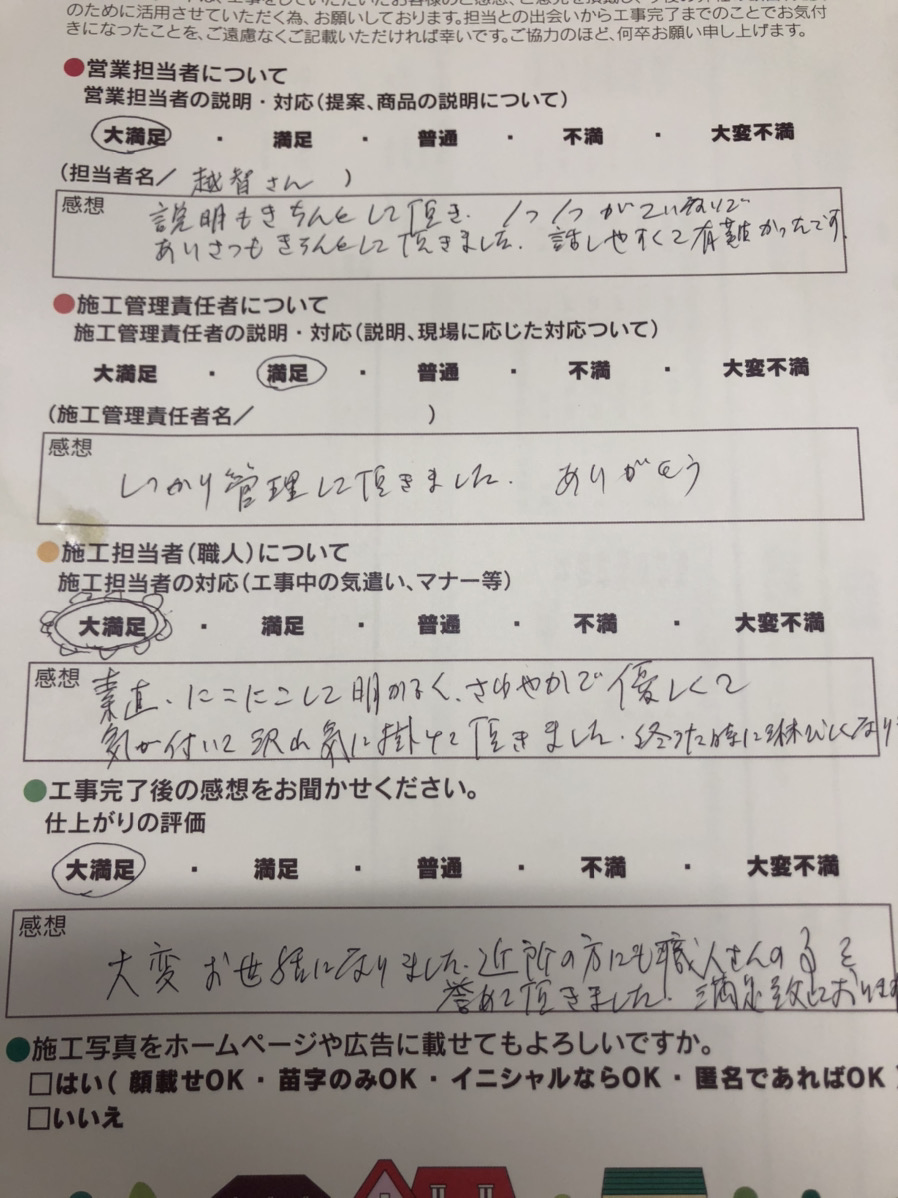 のために活用させていただく為、お願いしております。担当との出会いから工事完了までのことでお気付
きになったことを、ご遠慮なくご記載いただければ幸いです。ご協力のほど、何卒お願い申し上げます。
●営業担当者について
営業担当者の説明・対応(提案、商品の説明について)
大満足 ・ 満足 ・ 普通 ・ 不満 ・ 大変不満
(担当者名/ 越智さん )
感想
説明もきちんとして頂き、1つ1つがていねいで
あいさつもきちんとして頂きました。話しやすくて有難かったです。
●施工管理責任者について
施工管理責任者の説明・対応(説明、現場に応じた対応ついて)
大満足 ・ 満足 ・ 普通 ・ 不満 ・ 大変不満
(施工管理責任者名/ )
感想
しっかり管理して頂きました。ありがとう
●施工担当者(職人)について
施工担当者の対応(工事中の気遣い、マナー等)
大満足 ・ 満足 ・ 普通 ・ 不満 ・ 大変不満
感想
素直、にこにこして明かるく、さわやかで優しくて
気が付いて沢山気に掛けて頂きました。終った時に淋びしくなり
●工事完了後の感想をお聞かせください。
仕上がりの評価
大満足 ・ 満足 ・ 普通 ・ 不満 ・ 大変不満
感想
大変お世話になりました。近所の方にも職人さんの事を
誉めて頂きました。満足致しております
●施工写真をホームページや広告に載せてもよろしいですか。
□はい( 顔載せOK ・ 苗字のみOK ・ イニシャルならOK ・ 匿名であればOK )
□いいえ